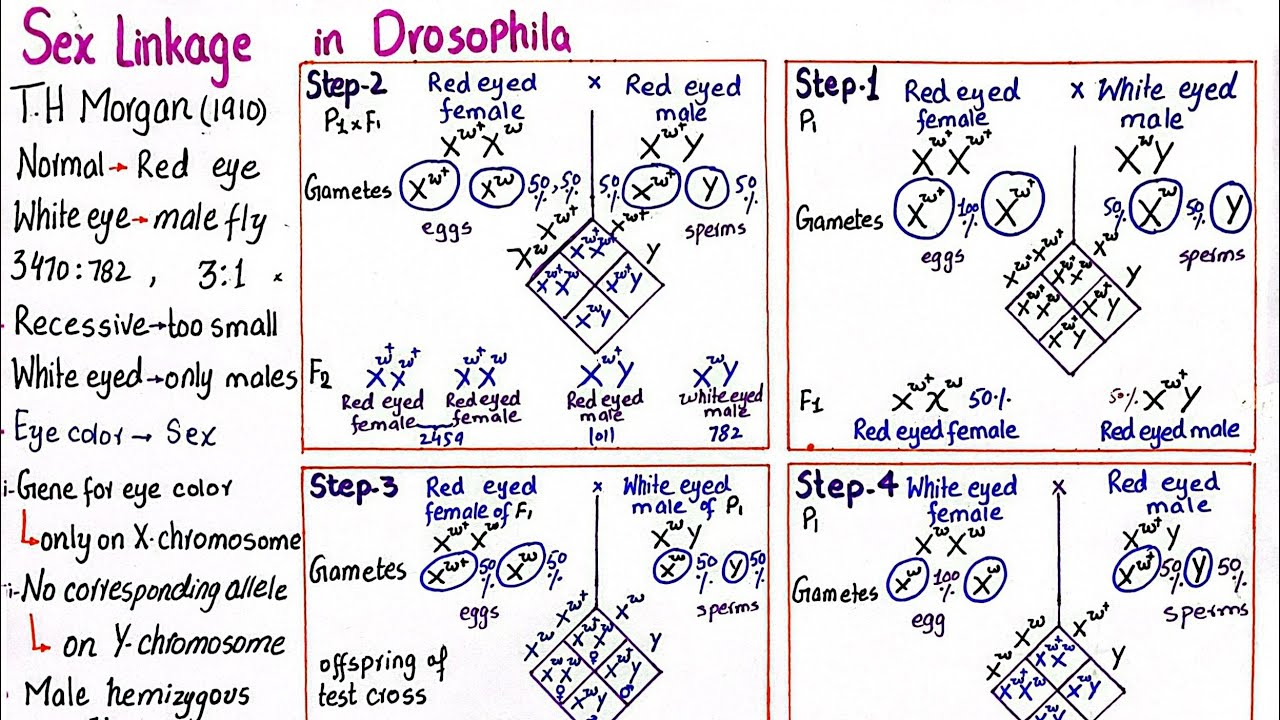 Sex Linkage in Drosophila
T.H Morgan (1910)
Normal → Red eye
White eye → male fly
3470:782 , 3:1 ×
Recessive → too small
White eyed → only males
Eye color → Sex
i- Gene for eye color
only on X-chromosome
i- No corresponding allele
on Y-chromosome
Male hemizygous
Step-2 Red eyed × Red eyed
female male
P1 x F1
X^w+ X^w X^w+ Y
Gametes X^w+ X^w 50%, 50% 50% X^w+ Y 50%
eggs sperms
X^w+ X^w+
X^w Y
X^w+ X^w+
X^w+ X^w X^w+ Y
X^w Y
F2 X^w+ X^w+ X^w+ X^w X^w+ Y X^w Y
Red eyed Red eyed Red eyed white eyed
female female male male
2459 1011 782
Step-1 Red eyed × White eyed
female male
P1
X^w+ X^w+ X^w Y
Gametes X^w+ 100% X^w+ 50% X^w 50% Y
eggs sperms
X^w+ X^w+ X^w
Y
X^w+ X^w
X^w+ Y
X^w+ Y
F1 X^w+ X^w 50% 50% X^w+ Y
Red eyed female Red eyed male
Step-3 Red eyed × White eyed
female of F1 male of P1
X^w+ X^w X^w Y
Gametes X^w+ 50% X^w 50% X^w 50% Y 50%
eggs sperms
X^w+ X^w
X^w Y
X^w+ X^w
♀
X^w X^w X^w+ Y
♀ ♂
X^w Y
offspring of
test cross
Step-4 White eyed × Red eyed
female male
P1
X^w X^w X^w+ Y
Gametes X^w 100% X^w X^w+ 50% Y 50%
egg sperms
X^w X^w+
X^w Y
X^w+ X^w
X^w+ X^w X^w Y